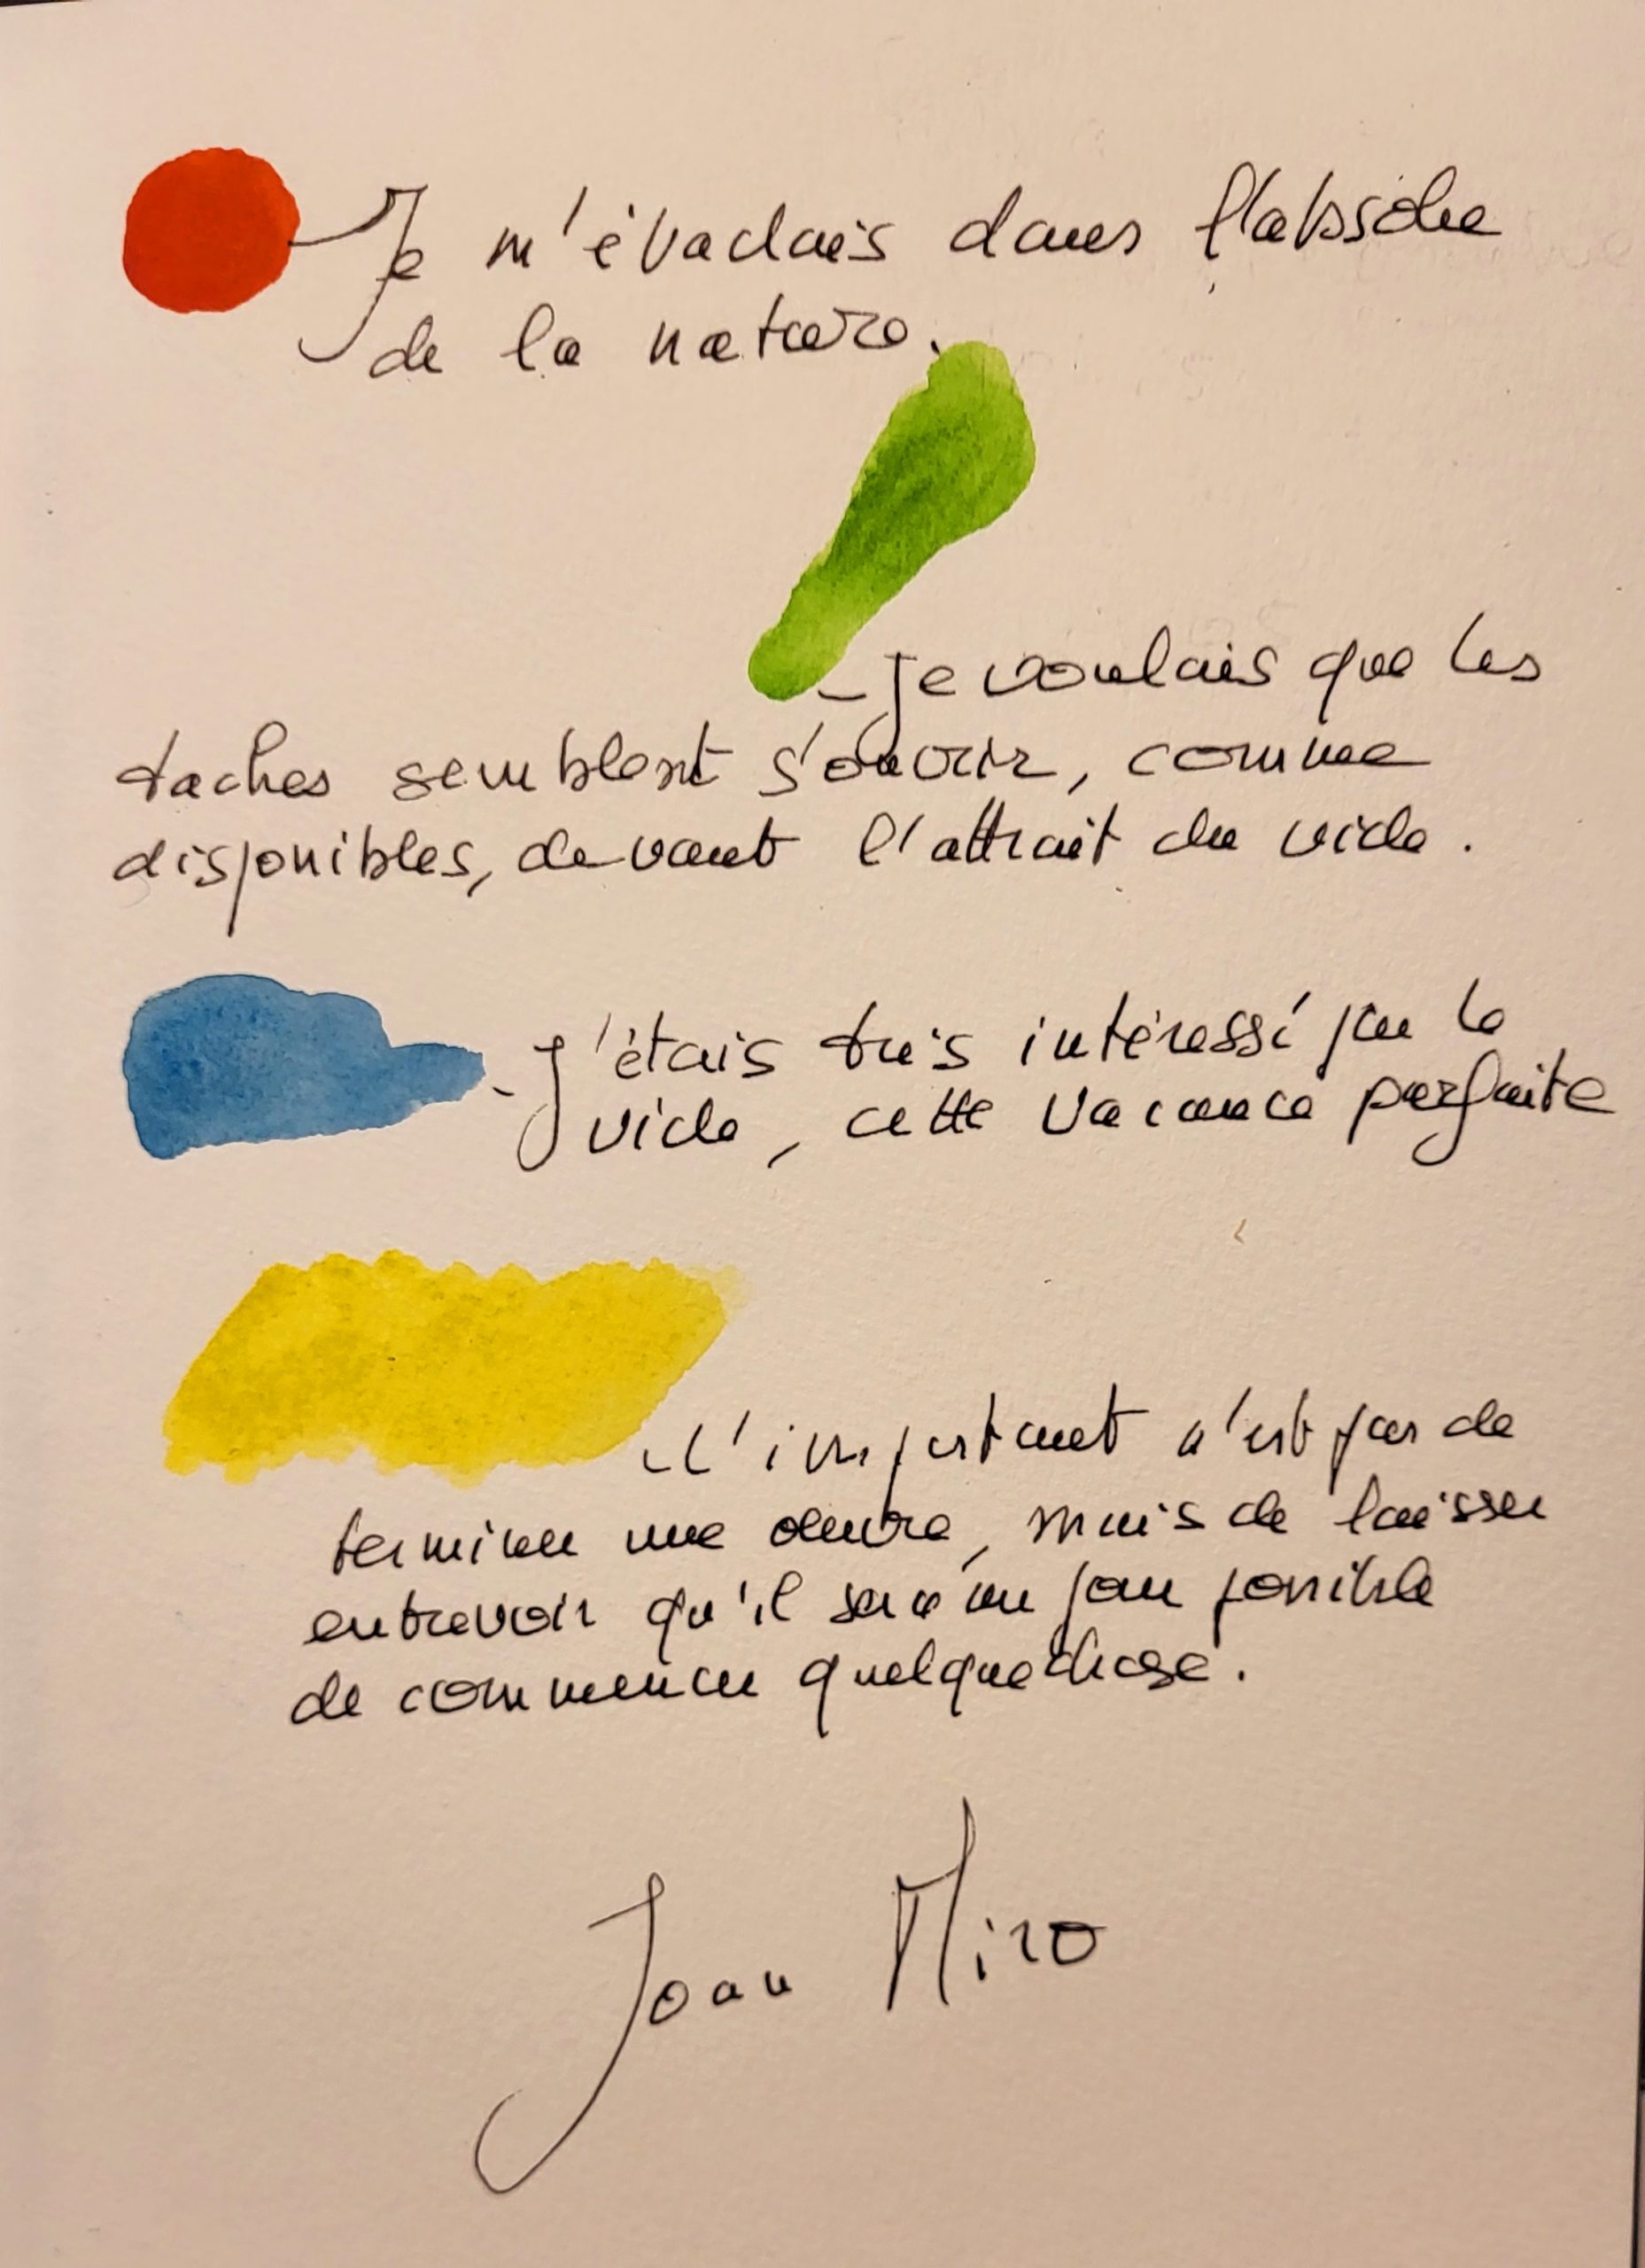 Je m'évadais dans l'absolu
de la nature.
- Je voulais que les
taches semblent s'ouvrir, comme
disponibles, devant l'attrait du vide.
- J'étais très intéressé par le
vide, cette vacance parfaite
- L'important n'est pas de
terminer une œuvre, mais de laisser
entrevoir qu'il sera un jour possible
de commencer quelque chose.
Joan Miro